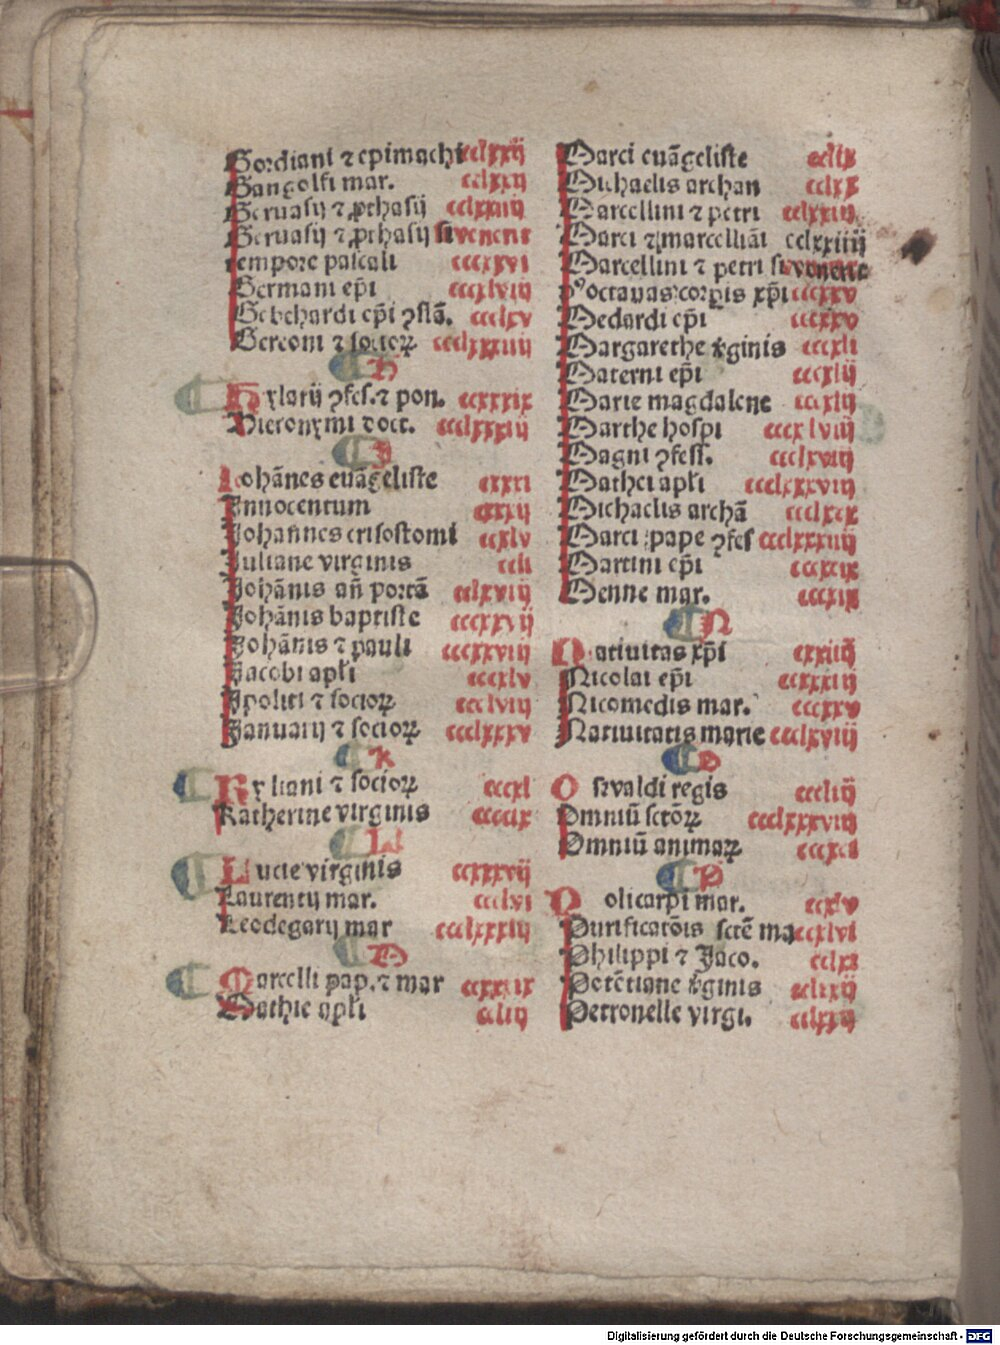 Gordiani ⁊ epimachi cclxxij
Gangolfi mar. cclxxij
Geruasij ⁊ ꝓthasij cclxxiiij
Geruasij ⁊ ꝓthasij si venerit
tempore pascali cccxxvi
Germani ep̄i cccxlviij
Gebehardi ep̄i ꝯfiā. ccclxv
Gereoni ⁊ socioꝝ ccclxxxiiij
H
Hylarij ꝯfes. ⁊ pon. ccxxxix
Hieronymi doct. ccclxxxiij
I
Iohānes euāgeliste cxxxi
Innocentum cxxxij
Johannes crisostomi ccxlv
Juliane virginis ccli
Johānis añ portā cclxviij
Johānis baptiste cccxxvij
Johānis ⁊ pauli cccxxviij
Jacobi apl̄i cccxlv
Jpoliti ⁊ socioꝝ ccclviij
Januarij ⁊ socioꝝ ccclxxxv
K
Kyliani ⁊ socioꝝ cccxl
Katherine virginis ccccix
L
Lucie virginis ccxxxvij
Laurentij mar. ccclvi
Leodegarij mar ccclxxxiij
M
Marcelli pap. ⁊ mar ccxxxix
Mathie apl̄i ccliij
Marci euāgeliste cclix
Michaelis archan cclxx
Marcellini ⁊ petri cclxxiij
Marci ⁊ marcelliāi cclxxiiij
Marcellini ⁊ petri si venerit
pꝰ octauas corꝑis xp̄i cccxxv
Medardi ep̄i cccxxv
Margarethe v̄ginis cccxli
Materni ep̄i cccxlij
Marie magdalene cccxlij
Marthe hospi cccxlviij
Magni ꝯfess. ccclxviij
Mathei apl̄i ccclxxxviij
Michaelis archā ccclxcx
Marci pape ꝯfes ccclxxxiiij
Martini ep̄i ccccxix
Menne mar. ccccxix
N
Natiuitas xp̄i cxxiiij
Nicolai ep̄i ccxxxiij
Nicomedis mar. cccxxv
Natiuitatis marie ccclxviij
O
Oswaldi regis cccliij
Omniū sctōꝝ ccclxxxviij
Omniū animaꝝ cccxci
P
Policarpi mar. ccxlv
Purificatōis sctē ma ccxlvi
Philippi ⁊ Jaco. cclxi
Potētiane v̄ginis cclxxij
Petronelle virgi. cclxxij
Digitalisierung gefördert durch die Deutsche Forschungsgemeinschaft - DFG